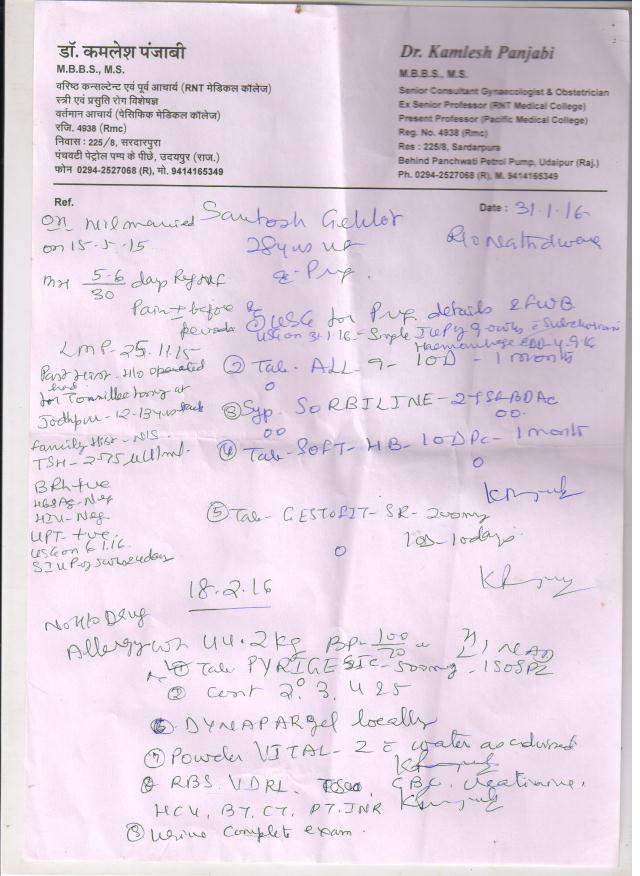 डॉ. कमलेश पंजाबी
M.B.B.S., M.S.
वरिष्ठ कन्सल्टेन्ट एवं पूर्व आचार्य (RNT मेडिकल कॉलेज)
स्त्री एवं प्रसुति रोग विशेषज्ञ
वर्तमान आचार्य (पेसिफिक मेडिकल कॉलेज)
रजि. 4938 (Rmc)
निवास : 225/8, सरदारपुरा
पंचवटी पेट्रोल पम्प के पीछे, उदयपुर (राज.)
फोन 0294-2527068 (R), मो. 9414165349
Dr. Kamlesh Panjabi
M.B.B.S., M.S.
Senior Consultant Gynaecologist & Obstetrician
Ex Senior Professor (RNT Medical College)
Present Professor (Pacific Medical College)
Reg. No. 4938 (Rmc)
Res : 225/8, Sardarpura
Behind Panchwati Petrol Pump, Udaipur (Raj.)
Ph. 0294-2527068 (R), M. 9414165349
Ref.
Date : 31.1.16
married
on 15.5.15
Santosh Gehlot
28yrs
R/o Nathdwara
MH 5-6/30 days Reg
Pain + before
periods
① USG for Preg. details & FWB
USG on 31.1.16 - Single
LMP - 25.11.15
Past Hist. H/o operated
for Tonsillectomy at
Jodhpur - 12-13 yrs back
Family Hist - NS
TSH - 2.75
BRh +ve
HBsAg - Neg
HIV - Neg
UPT - +ve
USG on 6.1.16
② Tab. ALL-9 - 1OD - 1 month
③ Syp. SORBILINE - 2TSF BD AC
④ Tab - SOFT-HB - 1OD PC - 1 month
⑤ Tab - GESTOFIT - SR - 200mg
1OD - 10 days
18.2.16
No H/o Drug
Allergy Wt 44.2 kg BP - 100/70
① Tab PYRIGESIC - 500mg - 1SOS
② Cont 2, 3, 4 & 5
⑥ DYNAPAR gel locally
⑦ Powder VITAL - 2 c water as advised
⑧ RBS, VDRL, CBC, Creatinine,
HCV, BT, CT, PT, INR
⑧ Urine complete exam.